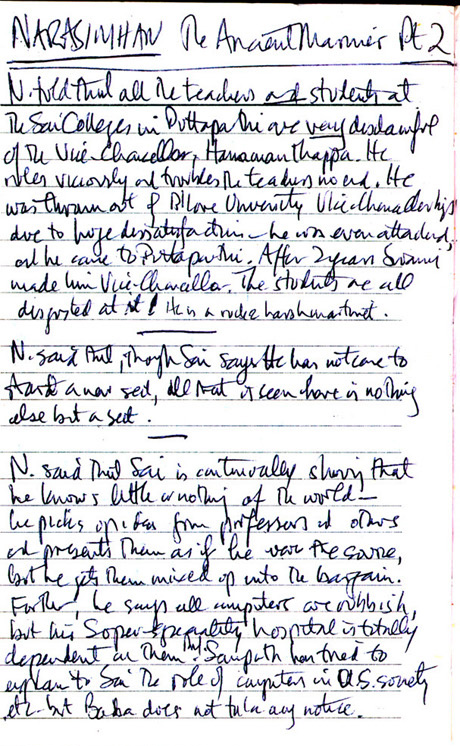 NARASIMHAN The Ancient Mariner Pt 2
N. told that all the teachers and students at
the Sai Colleges in Puttaparthi are very disdainful
of the Vice-Chancellor, Hanumanthappa. He
rules viciously and troubles the teachers no end. He
was thrown out of B'lore University Vice-Chancellorship
due to huge dissatisfaction – he was even attacked,
and he came to Puttaparthi. After 2 years Swami
made him Vice-Chancellor. The students are all
disgusted at it! He is a rude harsh martinet.
N. said that, though Sai says He has not come to
start a new sect, all that is seen here is nothing
else but a sect.
N. said that Sai is continually showing that
he knows little or nothing of the world –
he picks up ideas from professors and others
and presents them as if he were the source,
but he gets them mixed up into the bargain.
Further, he says all computers are rubbish,
but his Super-speciality hospital is totally
dependent on them. Sampath has tried to
explain to Sai the role of computers in U.S. society
etc. but Baba does not take any notice.